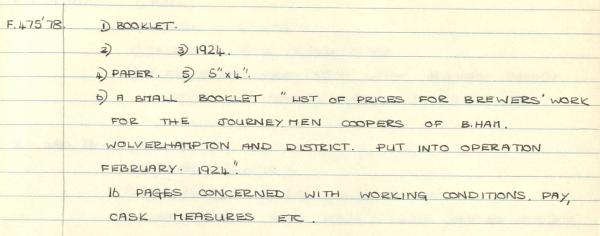 F.475'78. 1) BOOKLET.
2) 3) 1924.
4) PAPER. 5) 5" x 4".
6) A SMALL BOOKLET "LIST OF PRICES FOR BREWERS' WORK
FOR THE JOURNEYMEN COOPERS OF B.HAM.
WOLVERHAMPTON AND DISTRICT. PUT INTO OPERATION
FEBRUARY. 1924".
16 PAGES CONCERNED WITH WORKING CONDITIONS, PAY,
CASK MEASURES ETC.